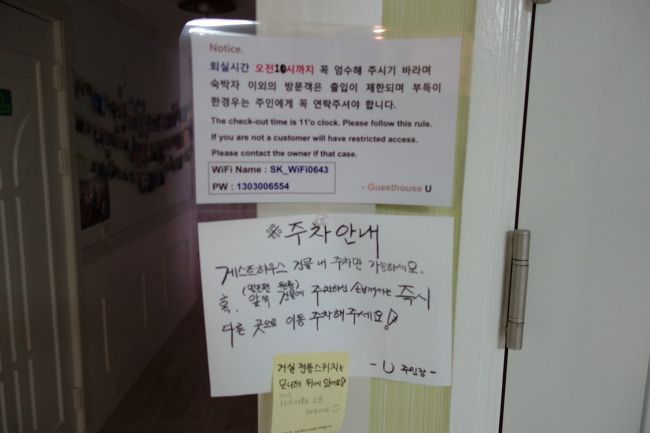 Notice.
퇴실시간 오전10시까지 꼭 엄수해 주시기 바라며
숙박자 이외의 방문객은 출입이 제한되며 부득이
한경우는 주인에게 꼭 연락주셔야 합니다.
The check-out time is 11'o clock. Please follow this rule.
If you are not a customer will have restricted access.
Please contact the owner if that case.
WiFi Name : SK_WiFi0643
PW : 1303006554
- Guesthouse U
※ 주차안내
게스트하우스 건물 내 주차만 가능하세요.
혹. 앞쪽 건물에 주차하신 손님께서는 즉시
다른 곳으로 이동 주차해주세요!
- U 주인장 -
거실 전등스위치는
모니터 뒤에 있어요!